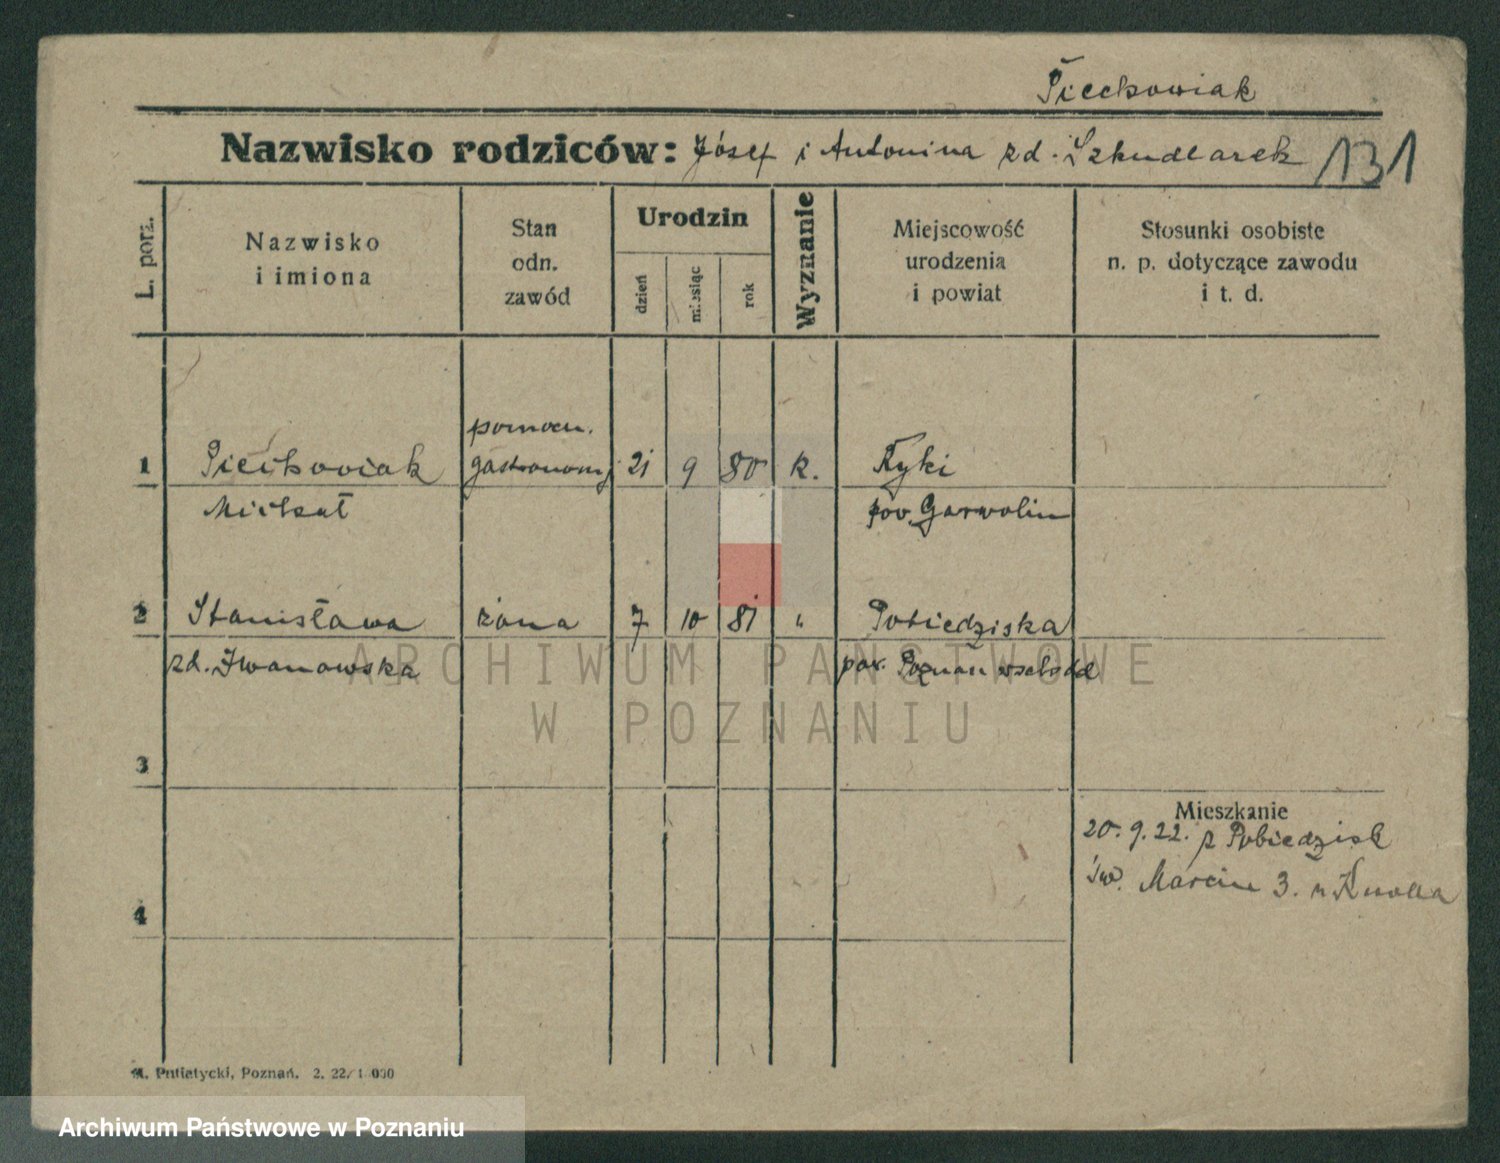 Piechowiak
Nazwisko rodziców: Józef i Antonina zd. Szkudlarek 131
L. porz.
Nazwisko
i imiona
Stan
odn.
zawód
Urodzin
dzień
miesiąc
rok
Wyznanie
Miejscowość
urodzenia
i powiat
Stosunki osobiste
n. p. dotyczące zawodu
i t. d.
pomocn.
1 Piechowiak gastronomj 21 9 80 k. Ryki
Michał pow. Garwolin
2 Stanisława żona 7 10 81 " Pobiedziska
zd. Iwanowska pow. Poznań wschód
ARCHIWUM PAŃSTWOWE
W POZNANIU
3
Mieszkanie
20. 9. 22. z Pobiedzisk
św. Marcin 3.
4
M. Putiatycki, Poznań. 2. 22/1 000
Archiwum Państwowe w Poznaniu